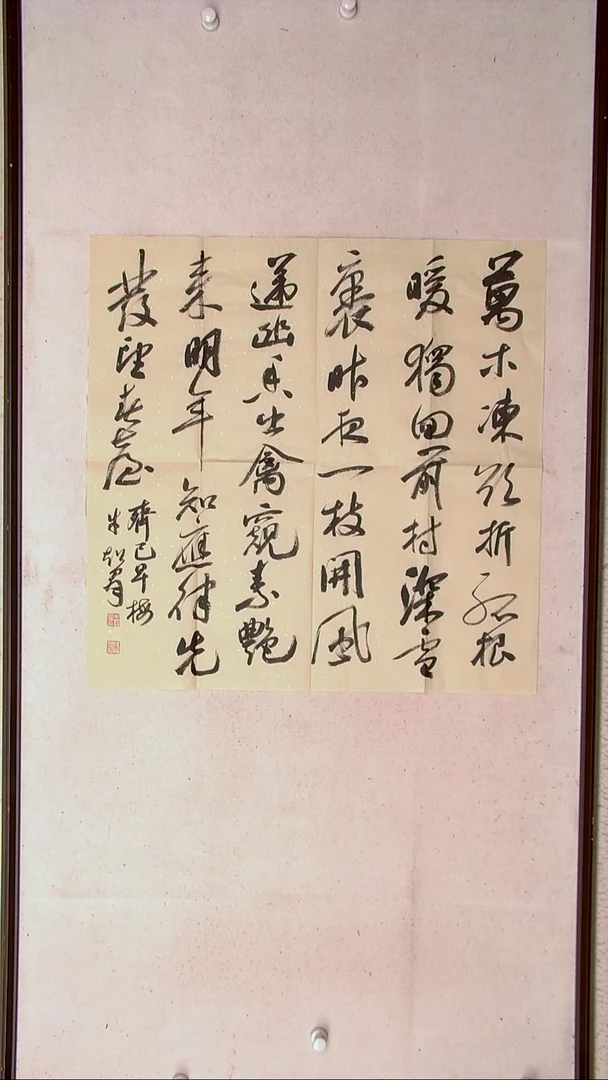 萬木凍欲折孤根
暖獨回前村深雪
裏昨夜一枝開風
遞幽香出禽窺素艷
來明年知應律先
發望春臺
齊己早梅
朱